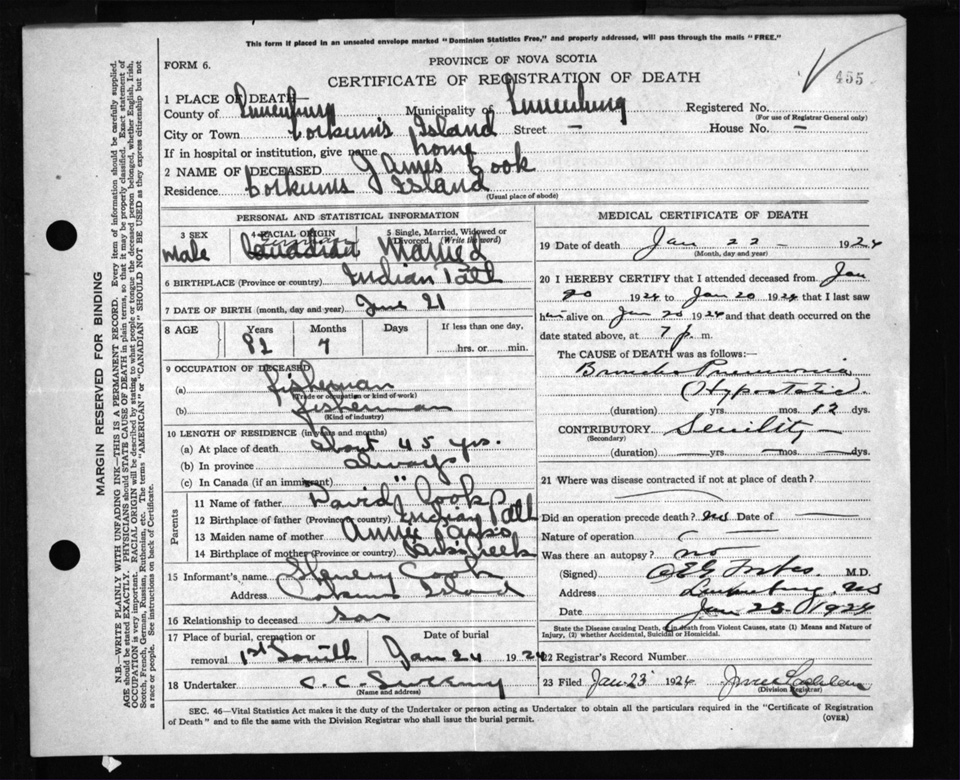 This form if placed in an unsealed envelope marked "Dominion Statistics Free," and properly addressed, will pass through the mails "FREE."
FORM 6.
PROVINCE OF NOVA SCOTIA
CERTIFICATE OF REGISTRATION OF DEATH
455
1 PLACE OF DEATH—
County of Lunenburg Municipality of Lunenburg Registered No.
(For use of Registrar General only)
City or Town Corkum's Island Street - House No. -
If in hospital or institution, give name home
2 NAME OF DECEASED James Cook
Residence Corkums Island
(Usual place of abode)
PERSONAL AND STATISTICAL INFORMATION
3 SEX 4 RACIAL ORIGIN 5 Single, Married, Widowed or Divorced. (Write the word)
Male Canadian Married
6 BIRTHPLACE (Province or country) Indian Path
7 DATE OF BIRTH (month, day and year) June 21
8 AGE Years Months Days If less than one day,
82 7 hrs. or min.
9 OCCUPATION OF DECEASED
(a) fisherman
(Trade or occupation or kind of work)
(b) fisherman
(Kind of industry)
10 LENGTH OF RESIDENCE (in years and months)
(a) At place of death About 45 yrs.
(b) In province always
(c) In Canada (if an immigrant) "
Parents
11 Name of father David Cook
12 Birthplace of father (Province or country) Indian Path
13 Maiden name of mother Annie
14 Birthplace of mother (Province or country)
15 Informant's name Cook
Address Corkums Island
16 Relationship to deceased son
17 Place of burial, cremation or removal 1st South Date of burial Jan 24 1924
18 Undertaker C. C.
(Name and address)
MEDICAL CERTIFICATE OF DEATH
19 Date of death Jan 22 - 1924
(Month, day and year)
20 I HEREBY CERTIFY that I attended deceased from Jan
20 1924 to Jan 20 1924 that I last saw
him alive on Jan 20 1924 and that death occurred on the
date stated above, at 7 p. m.
The CAUSE of DEATH was as follows:
Broncho Pneumonia
(Hypostatic)
(duration) yrs. mos. 12 dys.
CONTRIBUTORY Senility
(Secondary)
(duration) yrs. mos. dys.
21 Where was disease contracted if not at place of death?
Did an operation precede death? No Date of
Nature of operation
Was there an autopsy? no
(Signed) M.D.
Address Lunenburg, NS
Date Jan 23 1924
State the Disease causing Death, or in death from Violent Causes, state (1) Means and Nature of
Injury, (2) whether Accidental, Suicidal or Homicidal.
22 Registrar's Record Number
23 Filed Jan 23 1924
(Division Registrar)
SEC. 46—Vital Statistics Act makes it the duty of the Undertaker or person acting as Undertaker to obtain all the particulars required in the "Certificate of Registration
of Death" and to file the same with the Division Registrar who shall issue the burial permit.
(OVER)
MARGIN RESERVED FOR BINDING
N.B.—WRITE PLAINLY WITH UNFADING INK—THIS IS A PERMANENT RECORD. Every item of information should be carefully supplied.
AGE should be stated EXACTLY. PHYSICIANS should STATE CAUSE OF DEATH in plain terms, so that it may be properly classified. Exact statement of
OCCUPATION is very important. RACIAL ORIGIN will be described by stating to what people or tongue the deceased person belonged, whether English, Irish,
Scotch, French, German, Russian, Ruthenian, etc. The terms "AMERICAN" or "CANADIAN" SHOULD NOT BE USED as they express citizenship but not
a race or people. See instructions on back of Certificate.